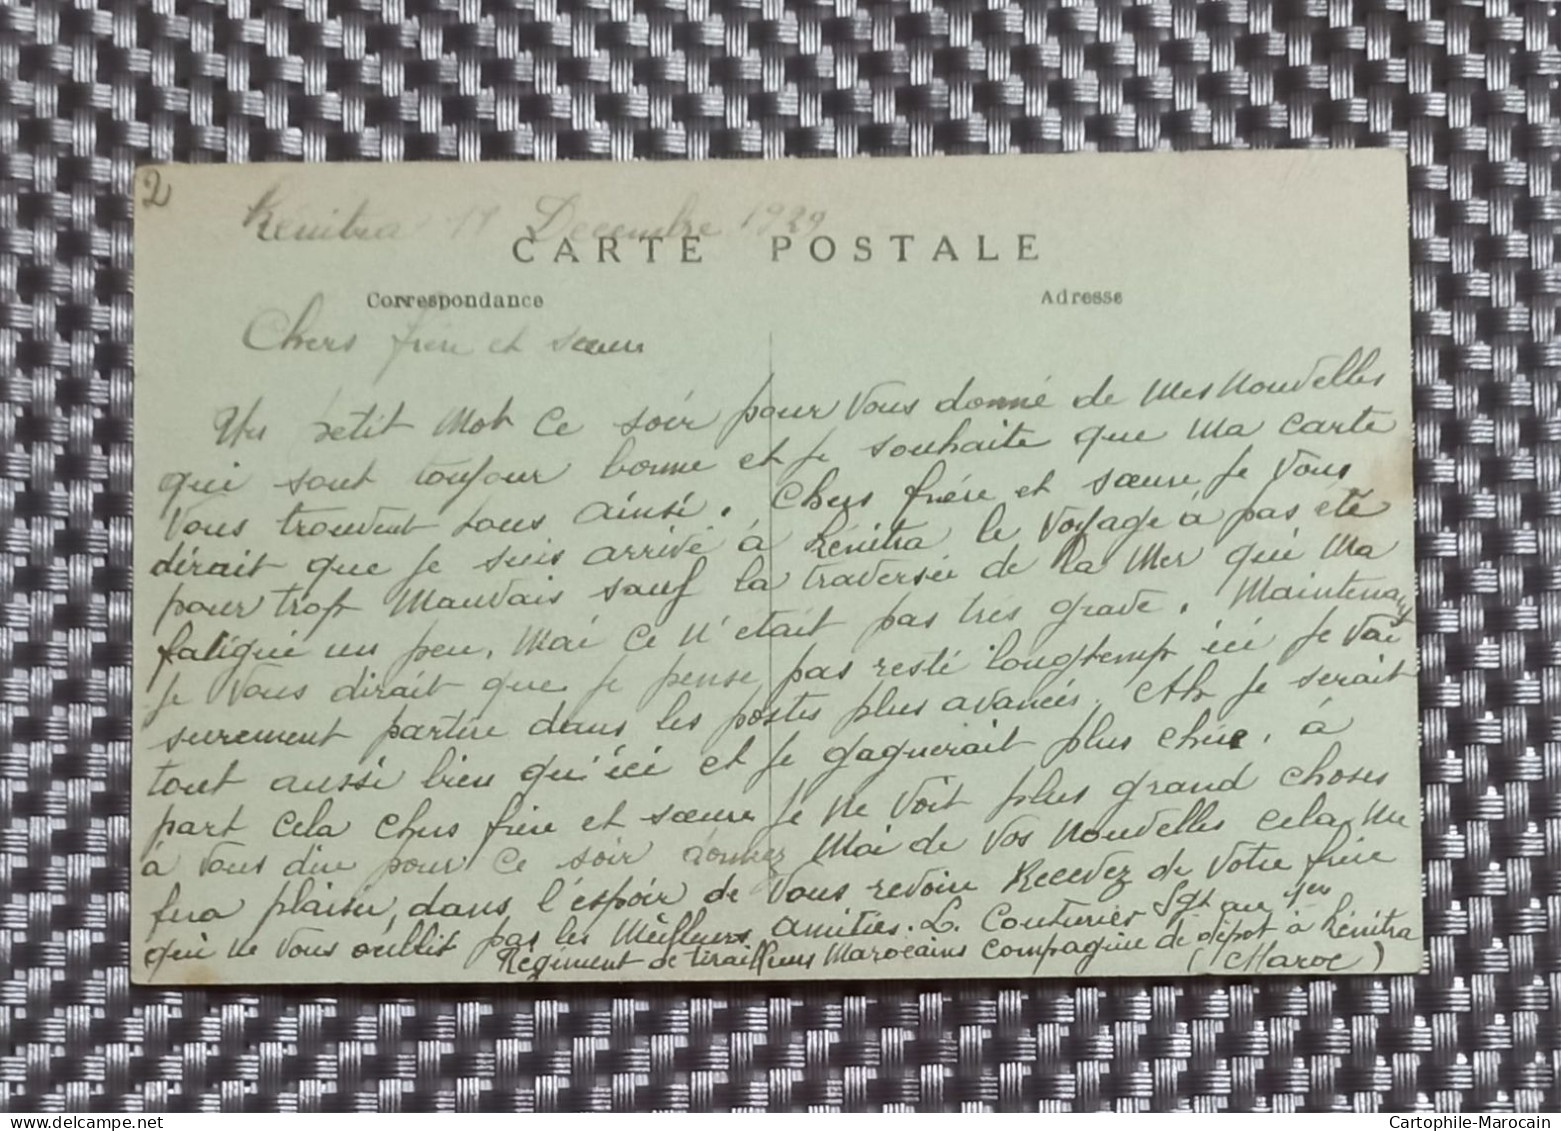 2
Kénitra 11 Decembre 1929
CARTE POSTALE
Correspondance
Adresse
Chers frère et sœur
Un petit Mot ce soir pour Vous donné de Mes Nouvelles
qui sont toujour bonne et je souhaite que Ma carte
Vous trouvent tous ainsi. Chers frère et sœure Je Vous
dirait que Je suis arrivé à Kénitra le Voyage à pas été
pour trop Mauvais sauf la traversée de la Mer qui Ma
fatigué un peu, Mai ce N'était pas très grave. Maintenant
Je Vous dirait que Je pense pas resté longtemp ici Je Vai
surement partire dans les postes plus avancés. Ah Je serait
tout aussi bien qu'ici et Je gagnerait plus chère. à
part cela chers frère et sœure Je Ne Voit plus grand choses
à Vous dire pour ce soir donnez Moi de Vos Nouvelles cela Me
fera plaisir, dans l'éspoir de Vous revoire Recevez de Votre frère
qui Ne Vous oublit pas les Meilleurs amitiés. L. Couturier Sgt au 1er
Régiment de tirailleurs Marocains Compagnie de dépot à Kénitra
(Maroc)
Cartophile-Marocain